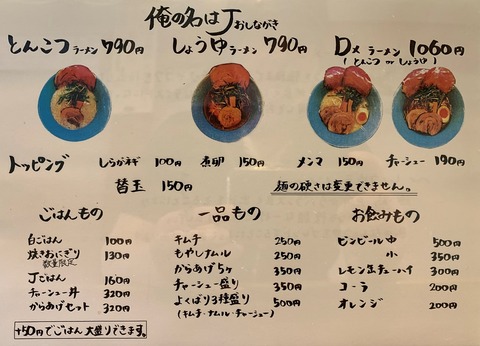 俺の名はJ おしながき
とんこつラーメン 790円 しょうゆラーメン 790円 DXラーメン 1060円
(とんこつ or しょうゆ)
トッピング しらがネギ 100円 煮卵 150円 メンマ 150円 チャーシュー 190円
替玉 150円 麺の硬さは変更できません。
ごはんもの
白ごはん 100円
焼きおにぎり 130円
数量限定
Jごはん 160円
チャーシュー丼 320円
からあげセット 320円
+50円でごはん大盛りできます。
一品もの
キムチ 250円
もやしナムル 250円
からあげ5ヶ 350円
チャーシュー盛り 350円
よくばり3種盛り 500円
(キムチ・ナムル・チャーシュー)
お飲みもの
ビンビール 中 500円
小 350円
レモン缶チューハイ 300円
コーラ 200円
オレンジ 200円